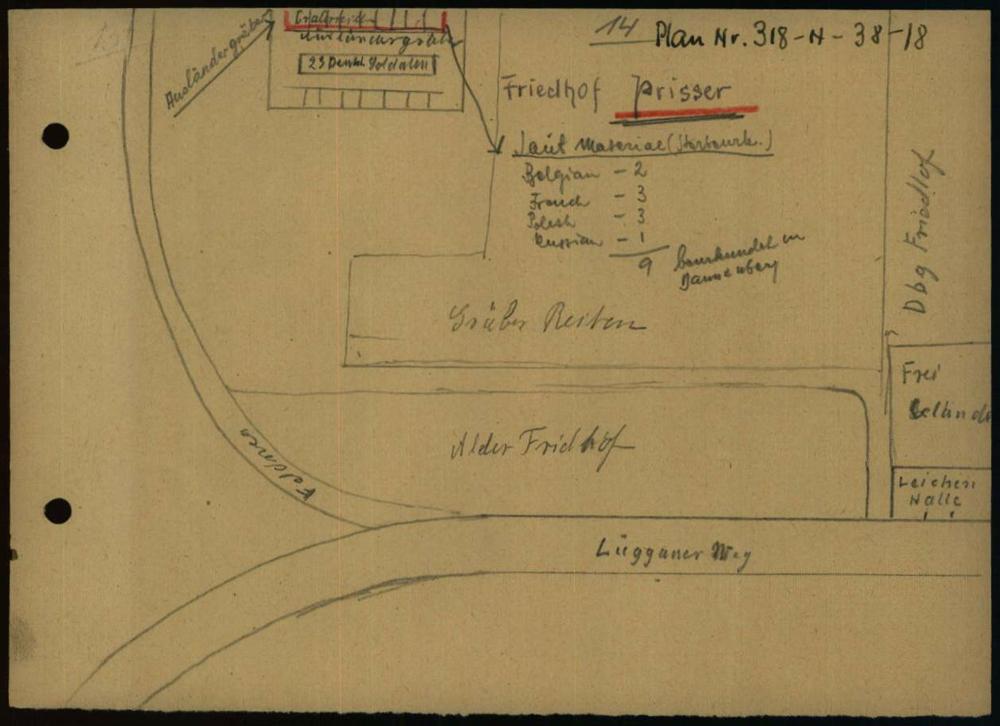 14 Plan Nr. 318-H-38-18
Ausländergräber
Ausländergräber
23 Deutsch. Soldaten
Friedhof Prisser
laut Material (Sterbeurk.)
Belgian - 2
French - 3
Polish - 3
Russian - 1
9 beurkundet in
Dannenberg
Dbg Friedhof
Gräber Reihen
Frei
Gelände
Alder Fridhof
Feldweg
Leichen
Halle
Lügganer Weg